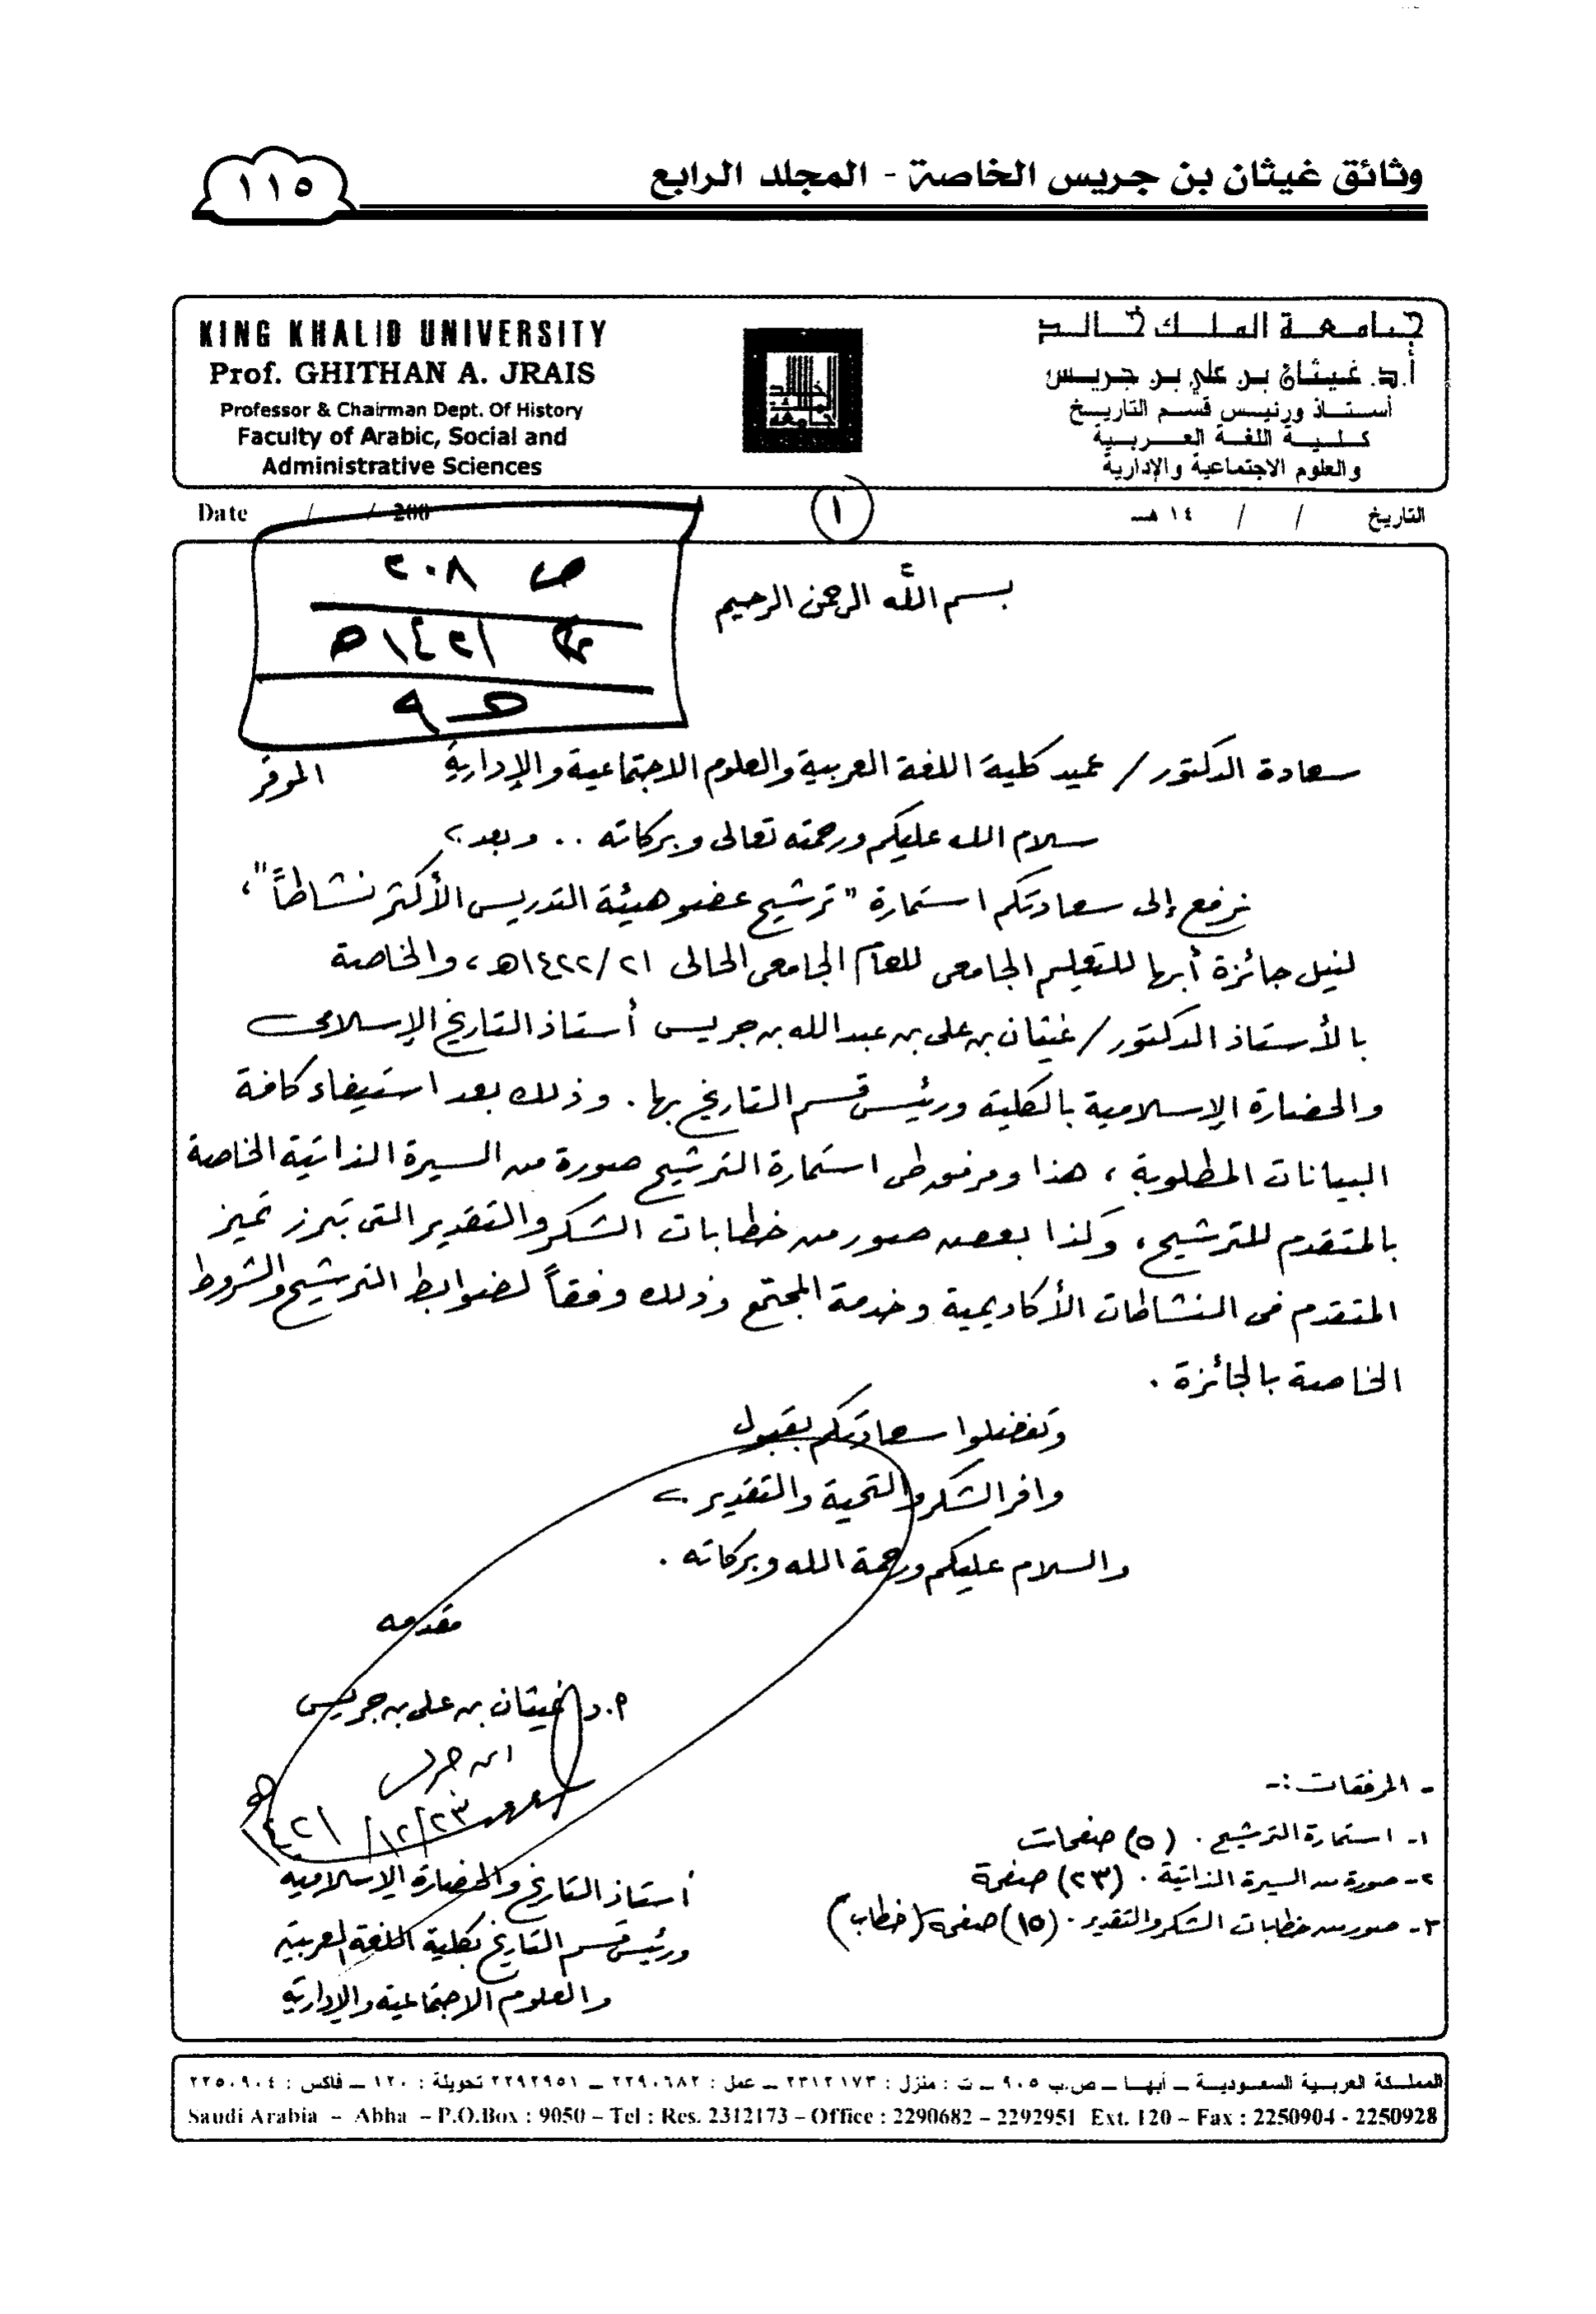 وثائق غيثان بن جريس الخاصة - المجلد الرابع
١١٥
جامعة الملك خالد
أ.د. غيثان بن علي بن جريس
أستاذ ورئيس قسم التاريخ
كلية اللغة العربية
والعلوم الاجتماعية والإدارية
KING KHALID UNIVERSITY
Prof. GHITHAN A. JRAIS
Professor & Chairman Dept. Of History
Faculty of Arabic, Social and
Administrative Sciences
التاريخ / / ١٤ هـ
١
Date / / 200
ص ٢٠٨
١٤٢١ه
بسم الله الرحمن الرحيم
سعادة الدكتور / عميد كلية اللغة العربية والعلوم الاجتماعية والإدارية الموقر
سلام الله عليكم ورحمته تعالى وبركاته .. وبعد
نرفع إلى سعادتكم استمارة "ترشيح عضو هيئة التدريس الأكثر نشاطاً"،
لنيل جائزة أبها للتعليم الجامعى للعام الجامعى الحالى ١٤٢٢/٢١هـ، والخاصة
بالأستاذ الدكتور / غيثان بن على بن عبدالله بن جريس أستاذ التاريخ الإسلامى
والحضارة الإسلامية بالكلية ورئيس قسم التاريخ بها. وذلك بعد استيفاء كافة
البيانات المطلوبة، هذا ومرفق طى استمارة الترشيح صورة من السيرة الذاتية الخاصة
بالمتقدم للترشيح، وكذا بعض صور من خطابات الشكر والتقدير التى تبرز تميز
المتقدم فى النشاطات الأكاديمية وخدمة المجتمع وذلك وفقاً لضوابط الترشيح والشروط
الخاصة بالجائزة.
وتفضلوا سعادتكم بقبول
وافر الشكر والتحية والتقدير
والسلام عليكم ورحمة الله وبركاته.
مقدمه
أ.د/ غيثان بن على بن جريس
ابن جريس
١٤٢١/١٢/٢٣ه
أستاذ التاريخ والحضارة الإسلامية
ورئيس قسم التاريخ بكلية اللغة العربية
والعلوم الاجتماعية والإدارية
- المرفقات :-
١- استمارة الترشيح. (٥) صفحات
٢- صورة من السيرة الذاتية. (٢٣) صفحة
٣- صور من خطابات الشكر والتقدير. (١٥) صفحة (خطاب)
المملكة العربية السعودية – أبها – ص.ب ٩٠٥ – ت : منزل : ٢٣١٢١٧٣ – عمل : ٢٢٩٠٦٨٢ – ٢٢٩٢٩٥١ تحويلة : ١٢٠ – فاكس : ٢٢٥٠٩٠٤
Saudi Arabia – Abha – P.O.Box : 9050 – Tel : Res. 2312173 – Office : 2290682 – 2292951 Ext. 120 – Fax : 2250904 - 2250928